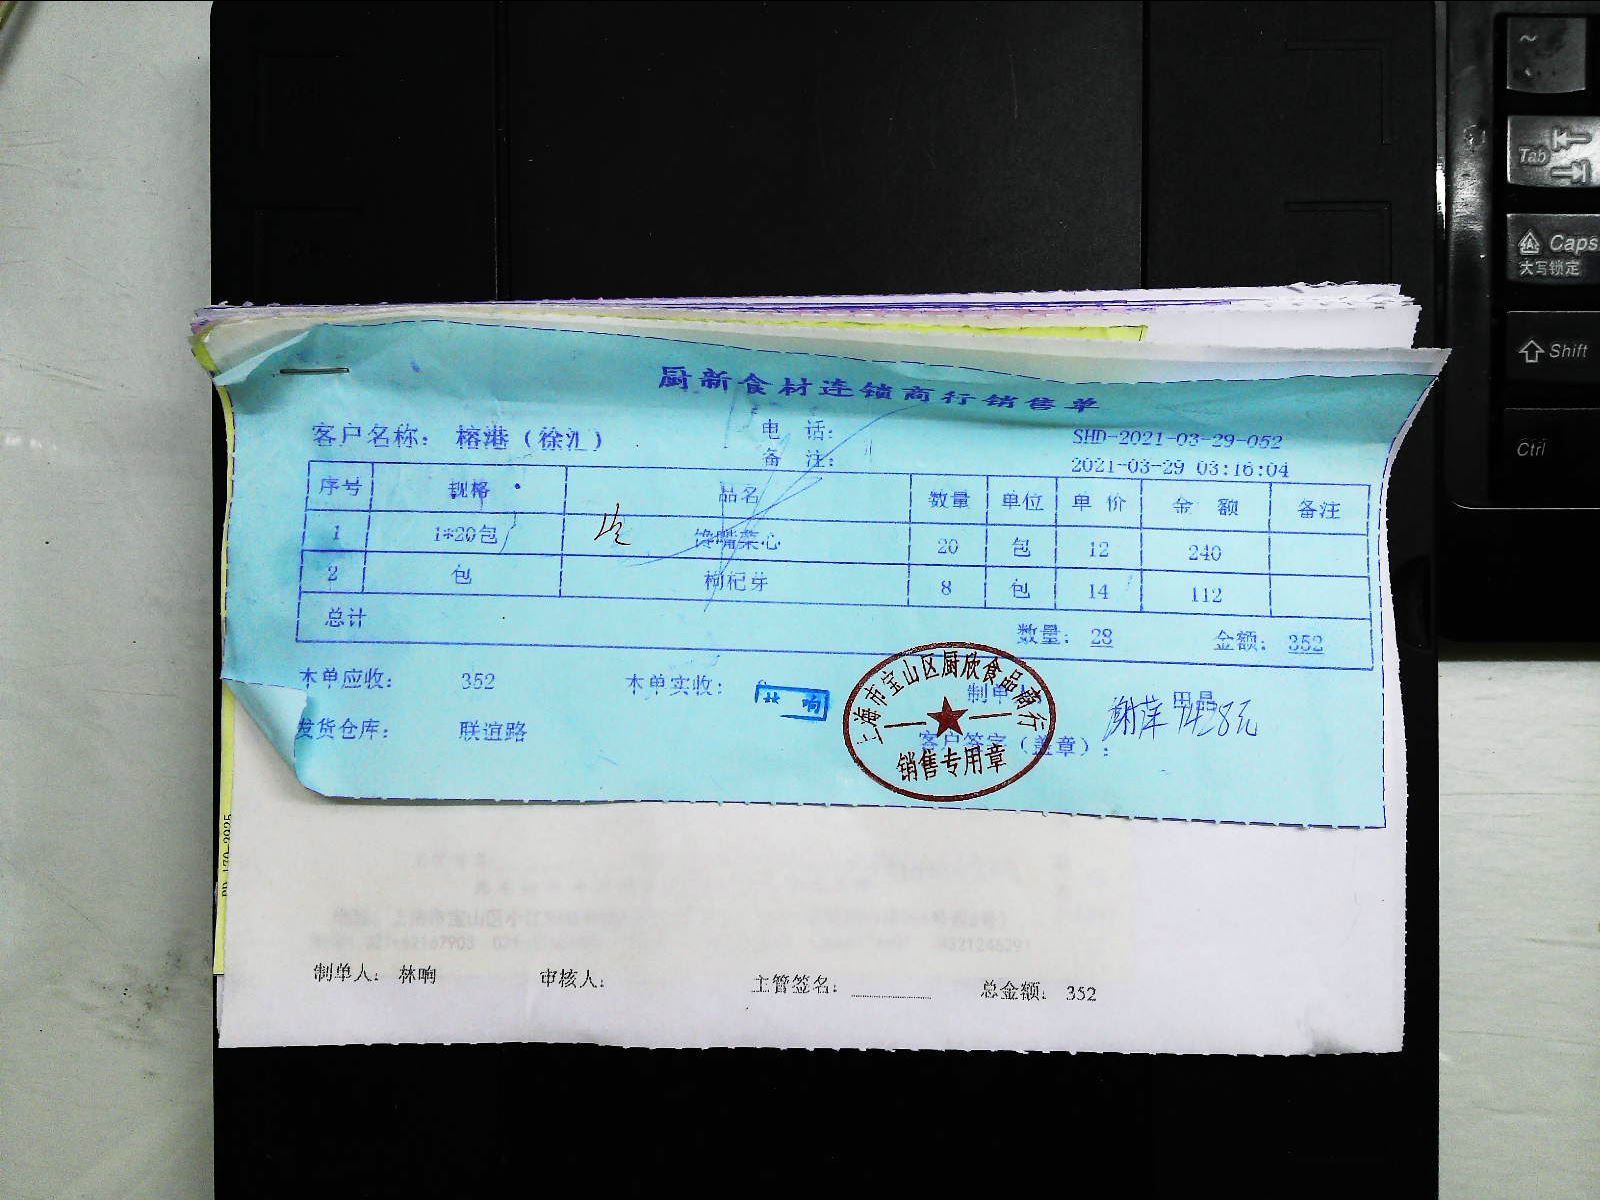 厨新食材连锁商行销售单
客户名称: 榕港 (徐汇) 电 话: SHD-2021-03-29-052
备 注: 2021-03-29 03:16:04
序号 规格 品名 数量 单位 单 价 金 额 备注
1 1*20包 馋嘴菜心 20 包 12 240
2 包 枸杞芽 8 包 14 112
总计 数量: 28 金额: 352
本单应收: 352 本单实收: 制单
发货仓库: 联谊路 客户签字 (盖章):
上海市宝山区厨欣食品商行
销售专用章
制单人: 林响 审核人: 主管签名: 总金额: 352
~
Tab
Caps
大写锁定
Shift
Ctrl